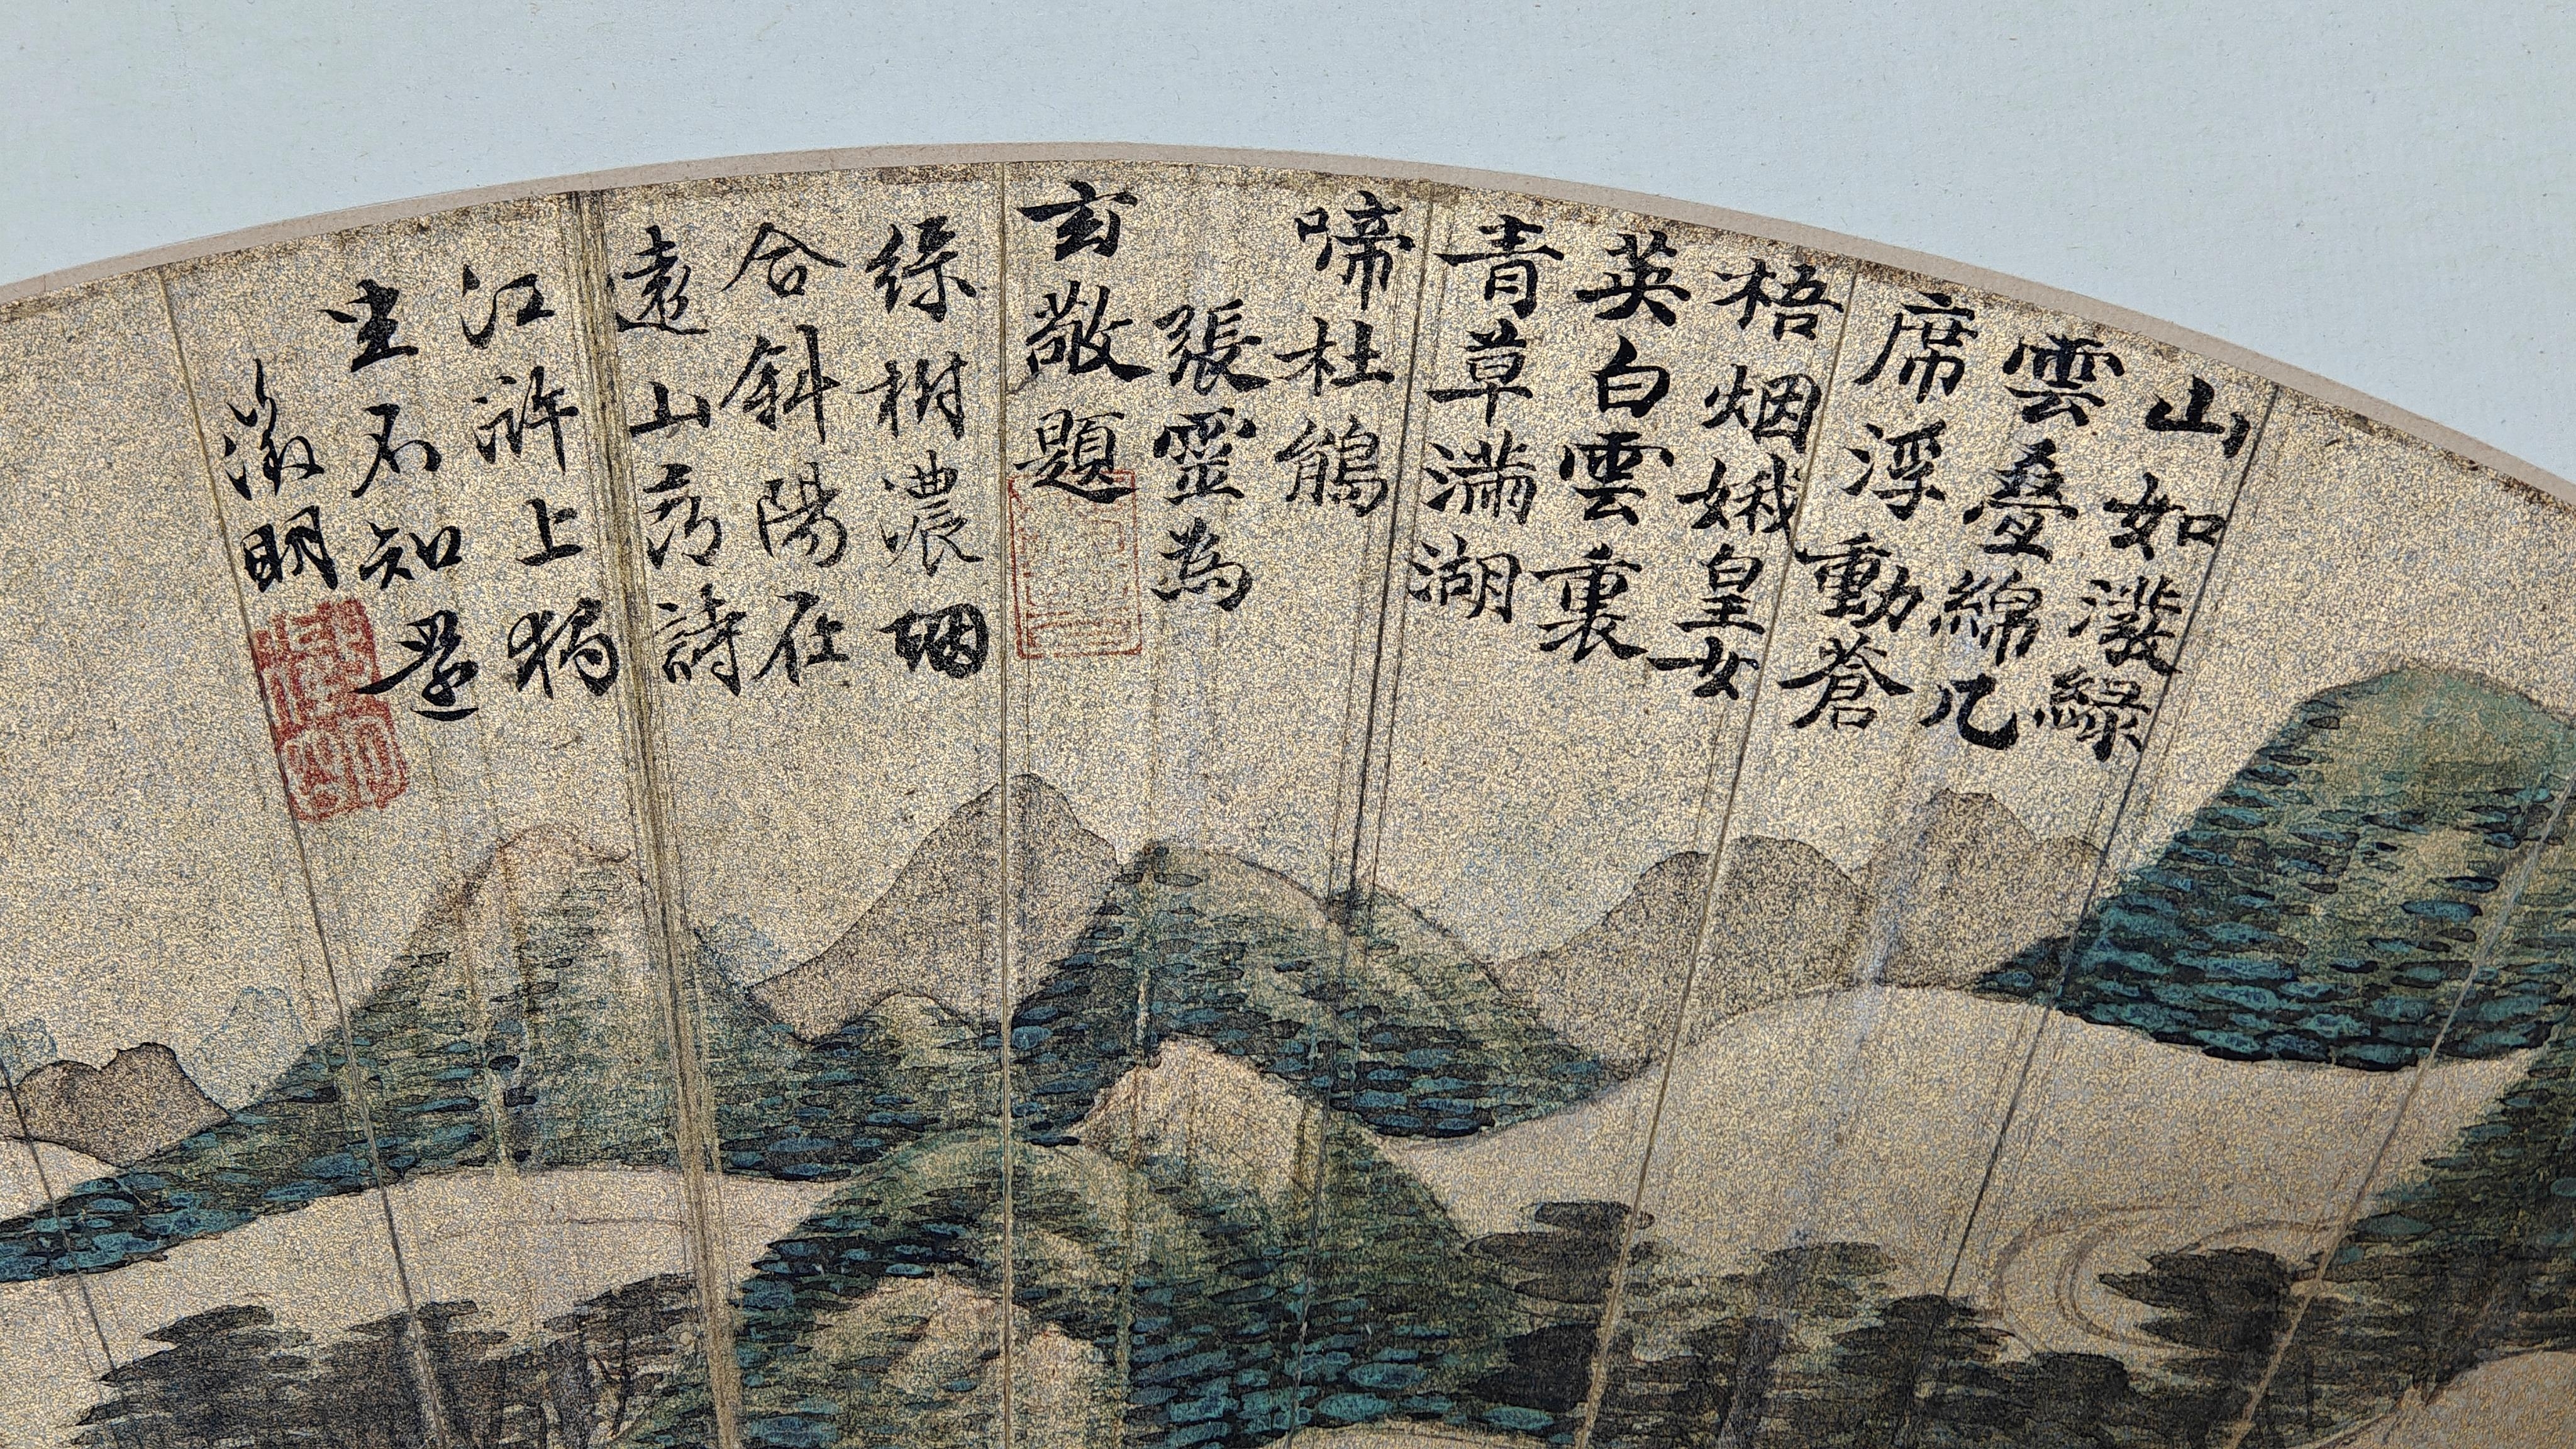 山如潑綠
雲疊綿几
席浮動蒼
梧烟娥皇女
英白雲裏
青草滿湖
啼杜鵑
張靈為
玄敬題
綠樹濃烟
合斜陽在
遠山為詩
江滸上獨
坐石知還
徵明